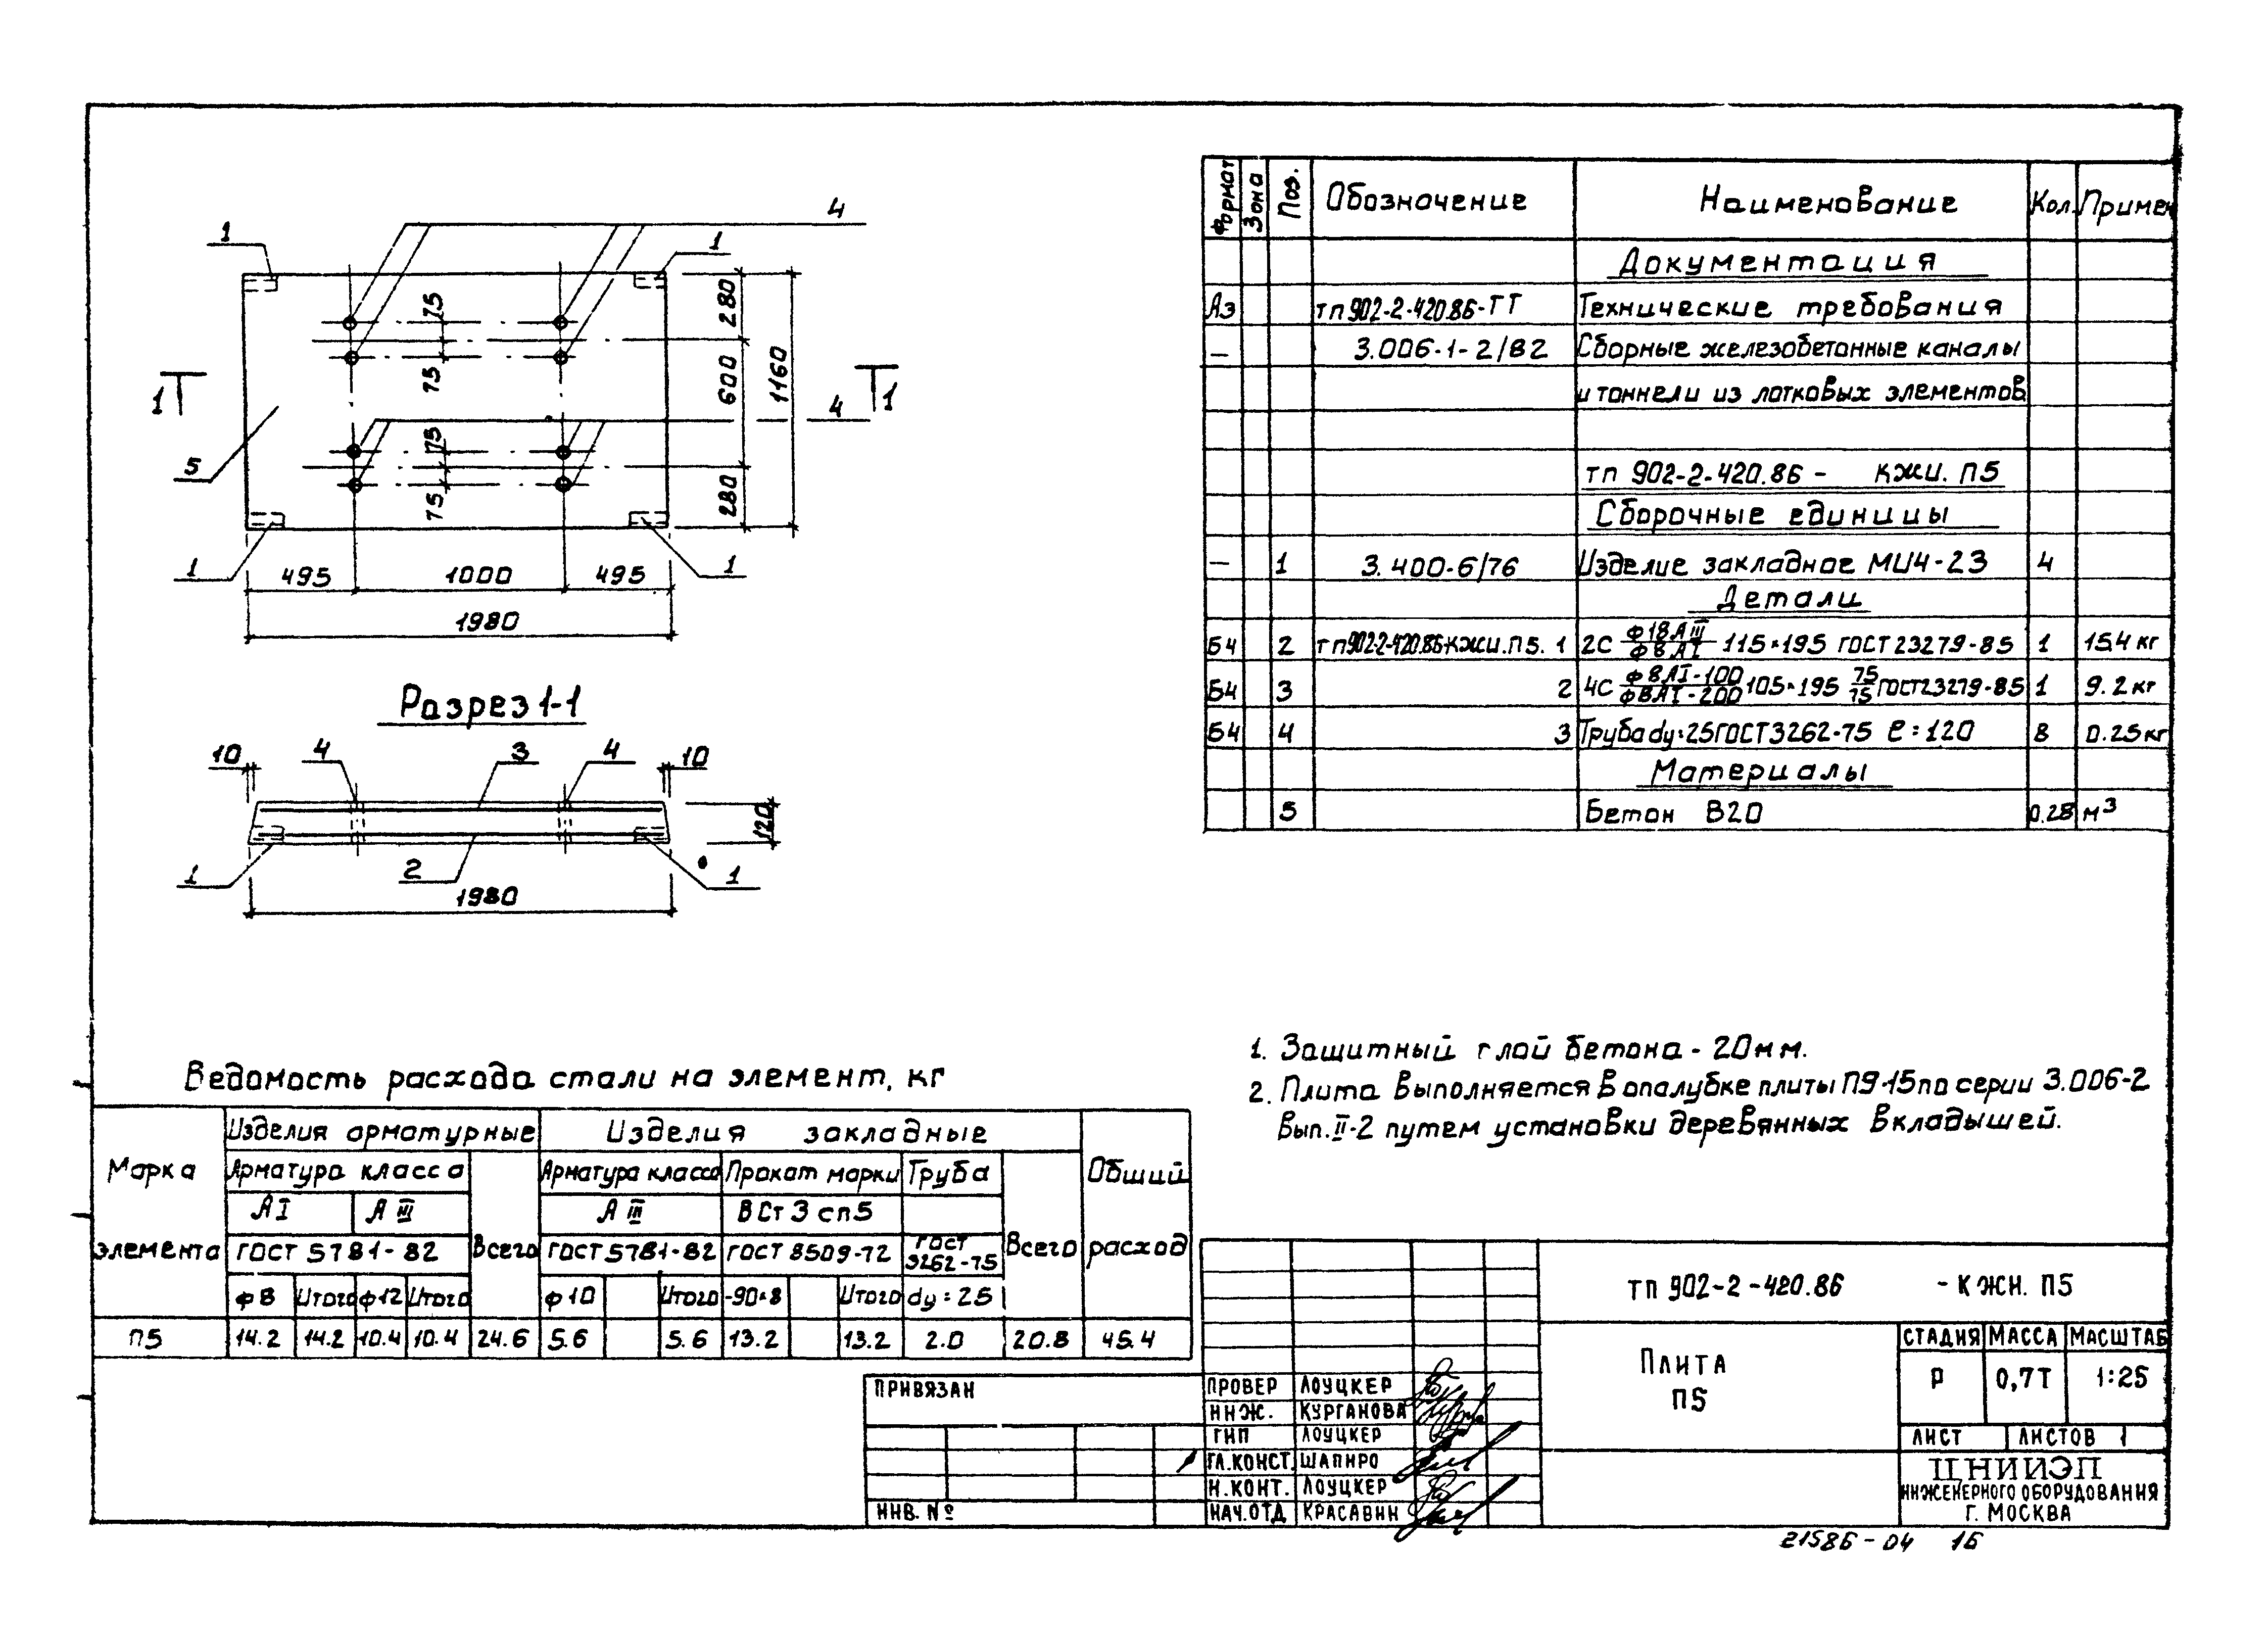 4
1
1
75
75
280
600
280
1160
1
1
4
5
75
75
1
1
495
1000
495
1980
Разрез 1-1
10
4
3
4
10
120
1
2
1
1980
Формат Зона Поз. Обозначение Наименование Кол. Примеч
Документация
А3 тп 902-2-420.86-ТТ Технические требования
— 3.006.1-2/82 Сборные железобетонные каналы
и тоннели из лотковых элементов
тп 902-2-420.86 - КЖИ. П5
Сборочные единицы
— 1 3.400-6/76 Изделие закладное МИ4-23 4
Детали
Б4 2 тп 902-2-420.86-КЖИ.П5. 1 2С ф18АIII/ф8АI 115×195 ГОСТ 23279-85 1 15.4 кг
Б4 3 2 4С ф8АI-100/ф8АI-200 105×195 75/75 ГОСТ 23279-85 1 9.2 кг
Б4 4 3 Труба dу=25 ГОСТ 3262-75 ℓ=120 8 0.25 кг
Материалы
5 Бетон В20 0.28 м³
1. Защитный слой бетона - 20 мм.
2. Плита выполняется в опалубке плиты П9-15 по серии 3.006-2
Вып. II-2 путем установки деревянных вкладышей.
Ведомость расхода стали на элемент, кг
Марка элемента
Изделия арматурные Изделия закладные
Общий расход
Арматура класса Всего Арматура класса Прокат марки Труба Всего
АI АIII АIII ВСт 3 сп5
ГОСТ 5781-82 ГОСТ 5781-82 ГОСТ 8509-72 ГОСТ 3262-75
ф8 Итого ф12 Итого ф10 Итого -90×8 Итого dу=25
П5 14.2 14.2 10.4 10.4 24.6 5.6 5.6 13.2 13.2 2.0 20.8 45.4
ПРИВЯЗАН
ИНВ. №
ПРОВЕР ЛОУЦКЕР
ИНЖ. КУРГАНОВА
ГИП ЛОУЦКЕР
ГЛ.КОНСТ. ШАПИРО
Н.КОНТ. ЛОУЦКЕР
НАЧ.ОТД КРАСАВИН
ТП 902-2-420.86 - КЖИ. П5
ПЛИТА
П5
СТАДИЯ МАССА МАСШТАБ
Р 0,7Т 1:25
ЛИСТ ЛИСТОВ 1
ЦНИИЭП
ИНЖЕНЕРНОГО ОБОРУДОВАНИЯ
Г. МОСКВА
21586-04 16